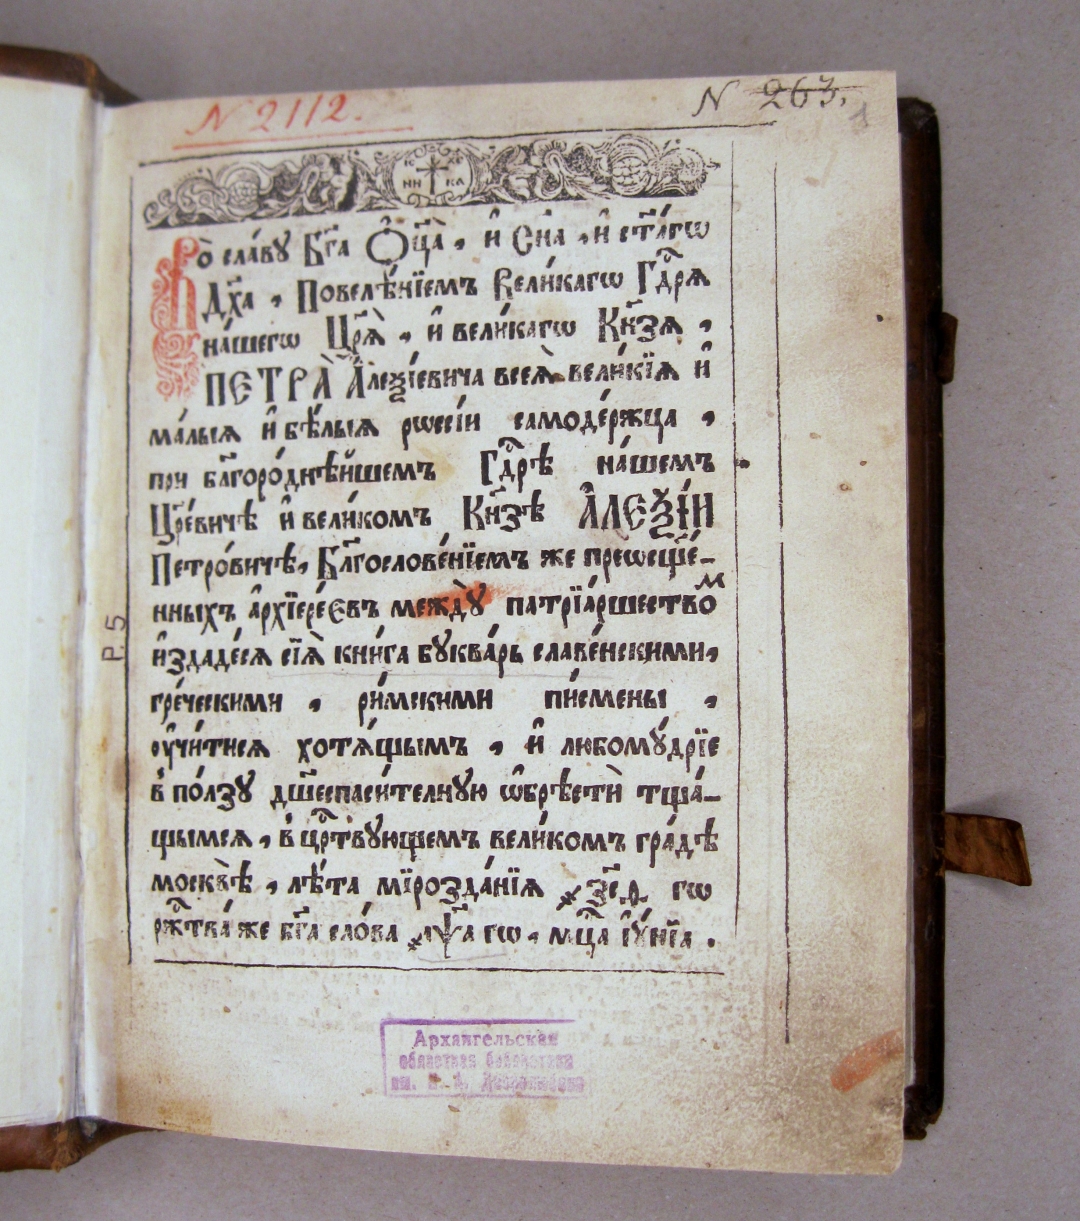 N 2112.
N 263.
1
IC XC
НИ КА
Во̀ сла́вꙋ Бг҃а Ѻц҃а̀, и҆ Сн҃а, и҆ ст҃а́гѡ
Дх҃а, Повелѣ́нїемъ Вели́кагѡ Гдⷭ҇рѧ
на́шегѡ Цр҃ѧ̀, и҆ вели́кагѡ Кн҃зѧ,
ПЕТРА̀ А҆леѯі́евича всеѧ̀ вели́кїѧ и҆
ма́лыѧ и҆ бѣ́лыѧ рѡссі́и самоде́ржца,
при бл҃горо́днѣйшемъ Гдⷭ҇рѣ на́шемъ
Цр҃е́вичѣ и҆ вели́комъ Кн҃зѣ А҆ЛЕѮІ́И
Петро́вичѣ, Бл҃гослове́нїемъ же пресⷮ҇ѡще́-
нныхъ а҆рхїере́євъ междꙋ̀ патрїа́ршествоⷨ
и҆здаде́сѧ сїѧ̀ кни́га бꙋква́рь славе́нскими,
гре́ческими, ри́мскими пи́смены,
ᲂу҆чи́тисѧ хотѧ́щымъ, и҆ любомꙋ́дрїе
в̾ по́лзꙋ дш҃еспаси́телнꙋю ѡ҆брѣстѝ тща́-
щымсѧ, в̾ црⷭ҇твꙋющемъ вели́комъ гра́дѣ
москвѣ̀, лѣ́та мїрозда́нїѧ ҂зс҃ѳ, гѡ
ржⷭ҇тва́ же бг҃а сло́ва ҂аѱ҃а гѡ, мцⷭ҇а і҆ꙋ́нїа.
Р.5
Архангельская
областная библиотека
им. Н. А. Добролюбова